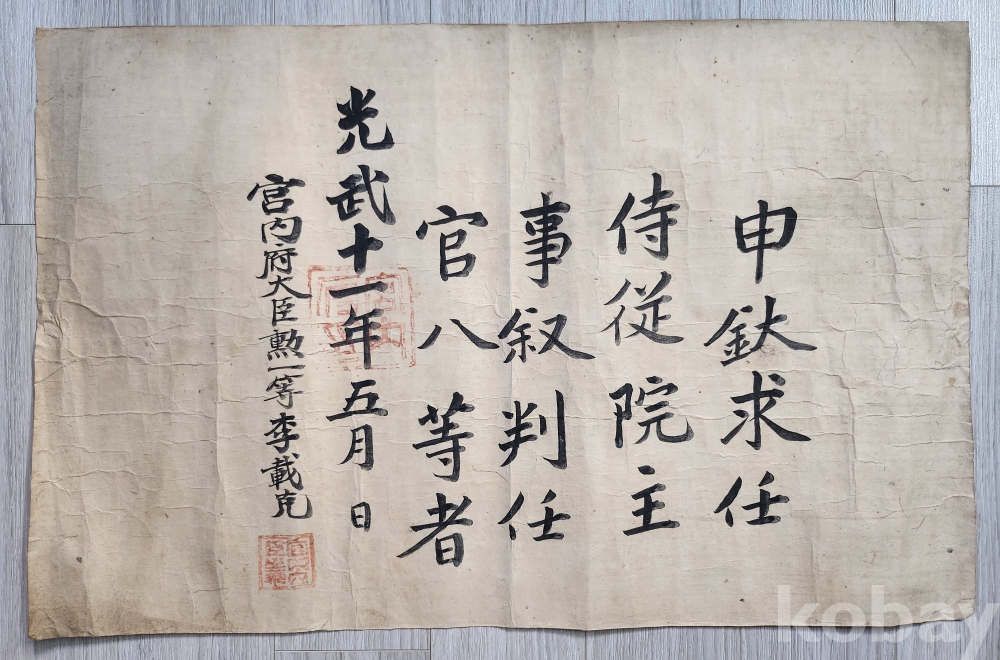 申鈦求任
侍從院主
事叙判任
官八等者
光武十一年五月 日
宮内府大臣勲一等李載克
kobay